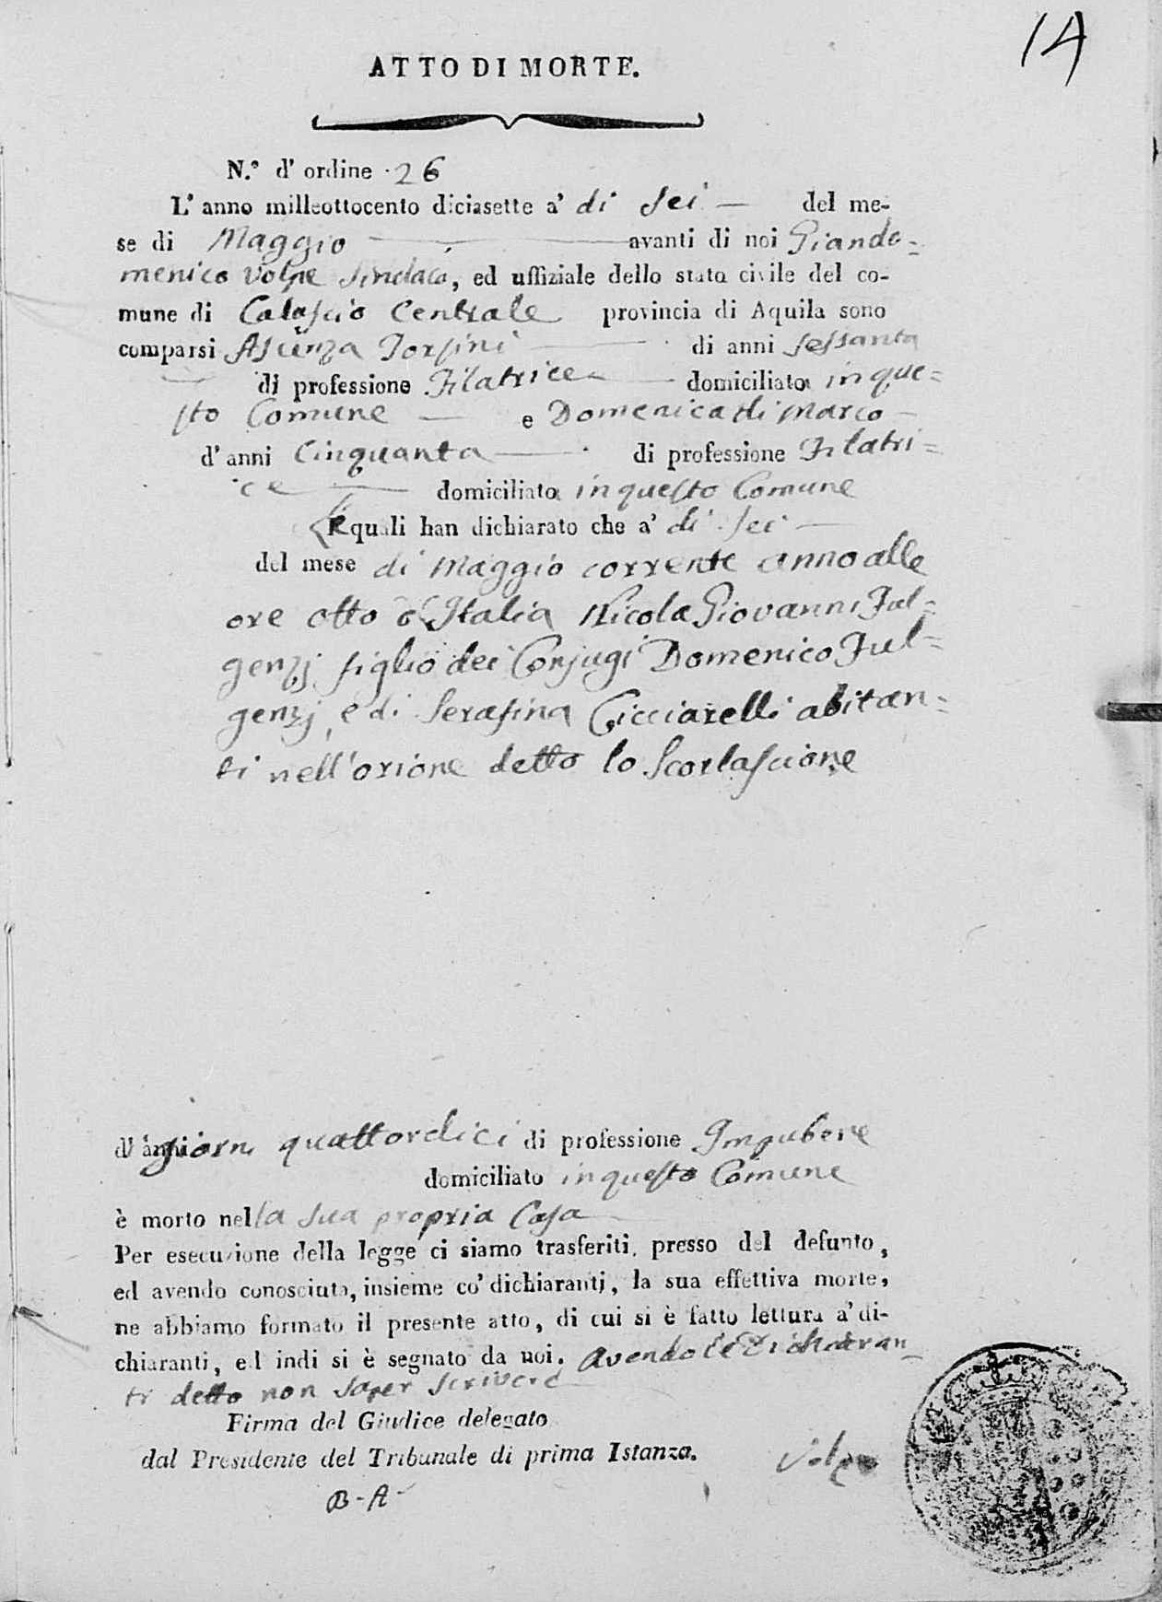 14
ATTO DI MORTE.
N.° d' ordine 26
L' anno milleottocento diciasette a' di sei del me-
se di Maggio avanti di noi Giando=
menico Volpe Sindaco, ed uffiziale dello stato civile del co-
mune di Calascio Centrale provincia di Aquila sono
comparsi Ascenza Torsini di anni sessanta
di professione Filatrice domiciliata in que=
sto Comune e Domenica di Marco
d' anni Cinquanta di professione Filatri=
ce domiciliata in questo Comune
quali han dichiarato che a' di sei
del mese di Maggio corrente anno alle
ore otto d'Italia Nicola Giovanni Ful=
genzj figlio dei Conjugi Domenico Ful=
genzj, e di Serafina Cicciarelli abitan=
ti nell'orione detto lo Scorlascione
d' anni giorni quattordici di professione Impubere
domiciliato in questo Comune
è morto nella sua propria Casa
Per esecuzione della legge ci siamo trasferiti presso del defunto,
ed avendo conosciuta, insieme co' dichiaranti, la sua effettiva morte,
ne abbiamo formato il presente atto, di cui si è fatto lettura a' di-
chiaranti, ed indi si è segnato da noi. avendo le Dichiaran=
ti detto non saper scrivere
Firma del Giudice delegato
dal Presidente del Tribunale di prima Istanza.
Volpe
B - A -